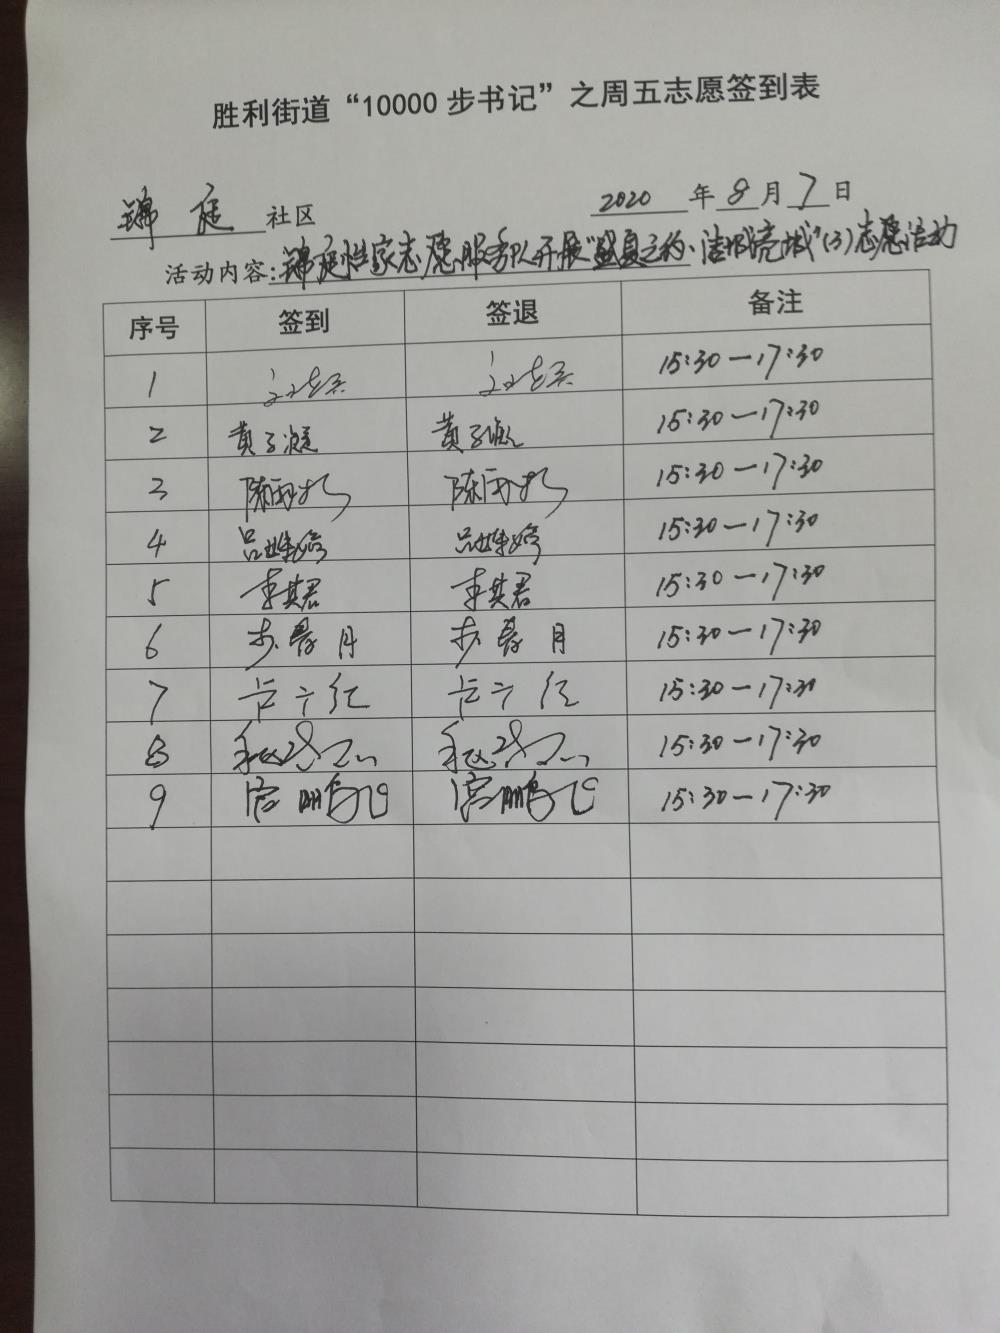 胜利街道“10000步书记”之周五志愿签到表
锦庭社区 2020年8月7日
活动内容:锦庭恒家志愿服务队开展“盛夏之约·洁城亮城”(3)志愿活动
序号 签到 签退 备注
1 15:30—17:30
2 黄子凝 黄子凝 15:30—17:30
3 陈雨 陈雨 15:30—17:30
4 15:30—17:30
5 李其君 李其君 15:30—17:30
6 步春月 步春月 15:30—17:30
7 卢广红 卢广红 15:30—17:30
8 15:30—17:30
9 宫鹏飞 宫鹏飞 15:30—17:30